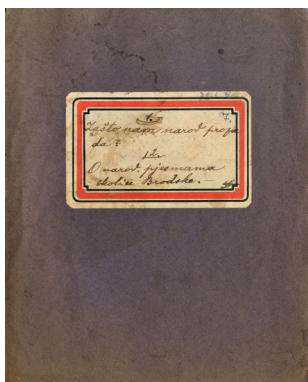 7.
1.
Zašto nam narod propa
da?
2.
O narod. pjesmama
okolice Brodske. —